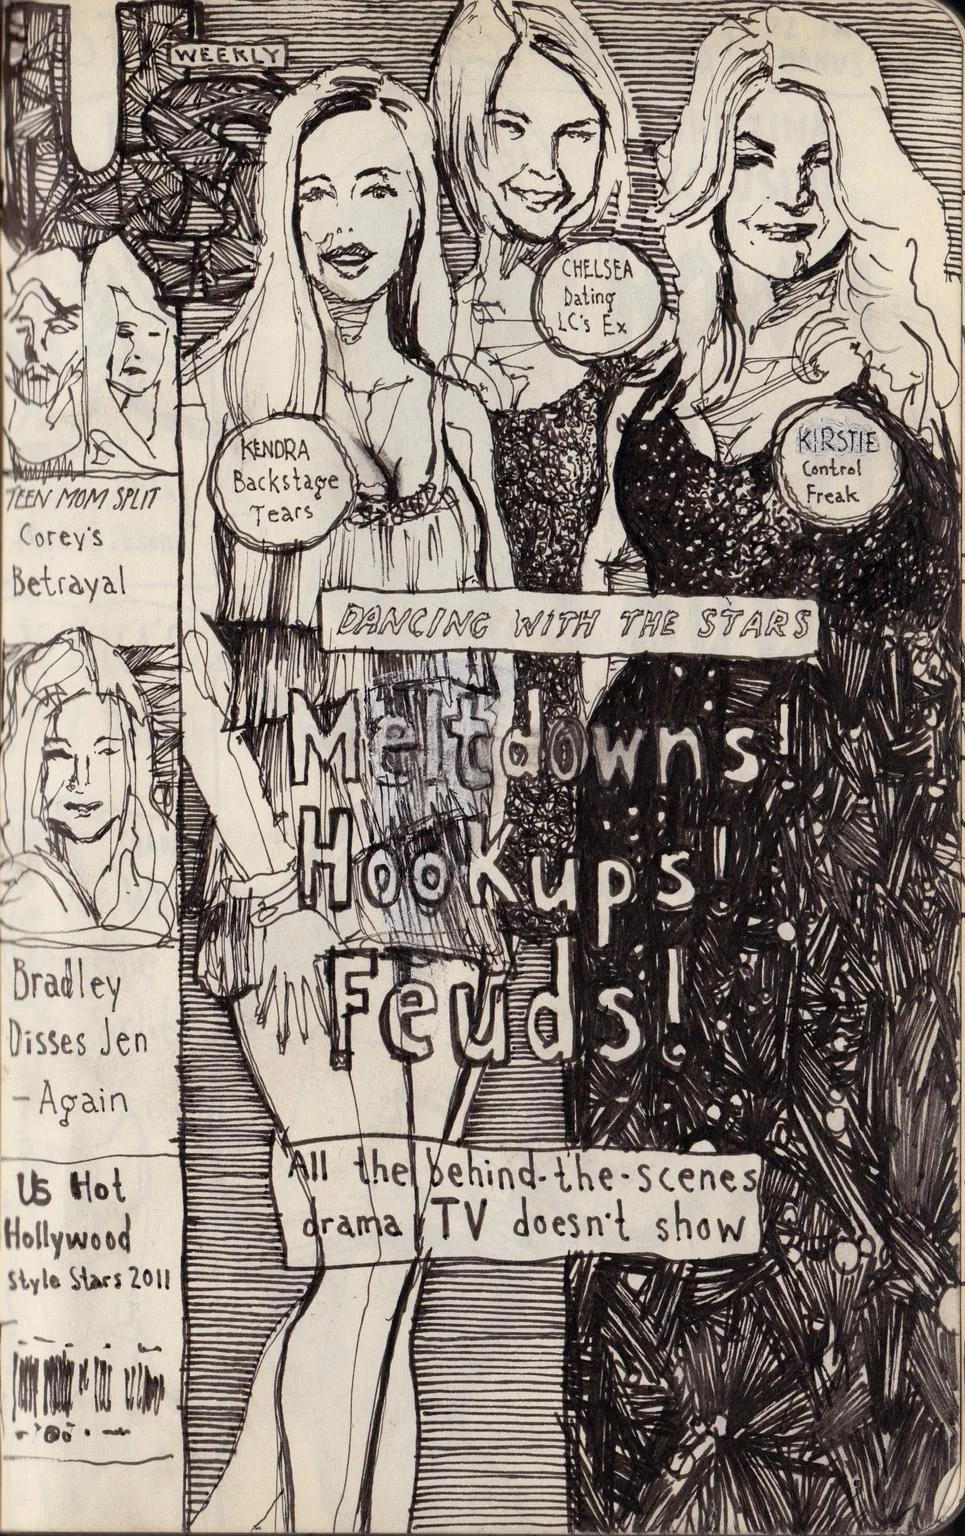 WEEKLY
CHELSEA
Dating
LC's Ex
KENDRA
Backstage
Tears
KIRSTIE
Control
Freak
TEEN MOM SPLIT
Corey's
Betrayal
DANCING WITH THE STARS
Meltdowns!
HooKups!
Feuds!
Bradley
Disses Jen
- Again
All the behind-the-scenes
drama TV doesn't show
US Hot
Hollywood
Style Stars 2011